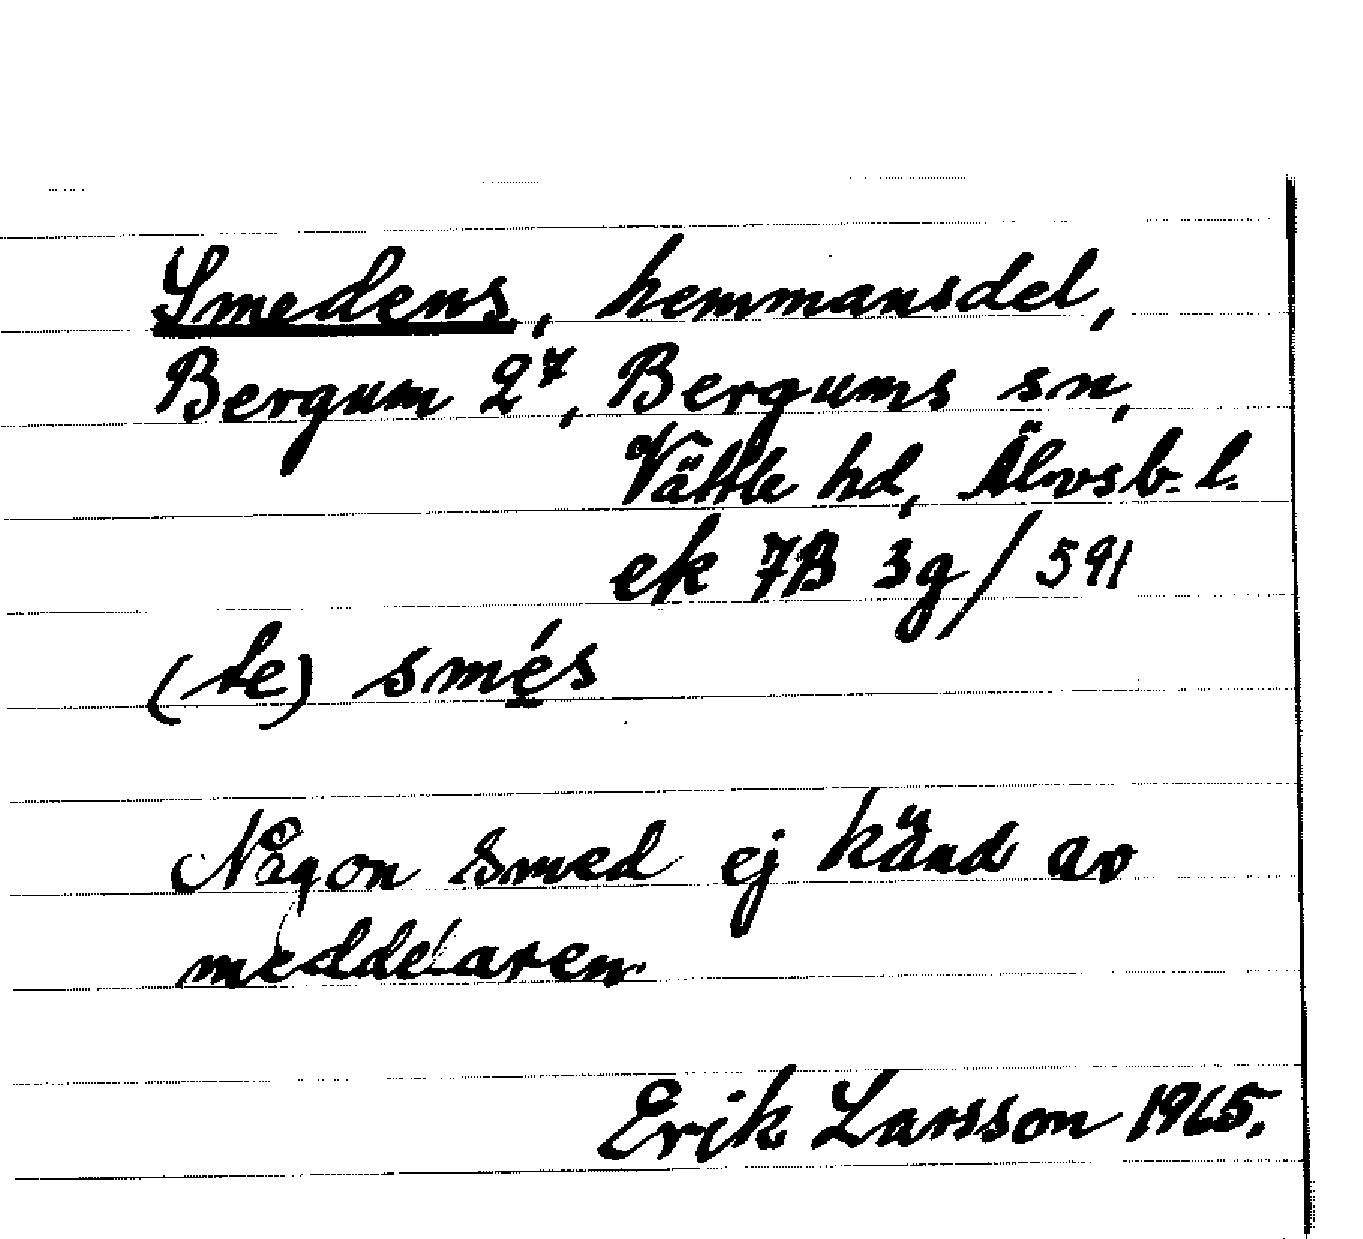 Smedens, hemmansdel,
Bergum 2⁷, Bergums sn,
Vättle hd, Älvsb. l.
ek 7B 3g/591
(te) smé̱s
Någon smed ej känd av
meddelaren
Erik Larsson 1965.